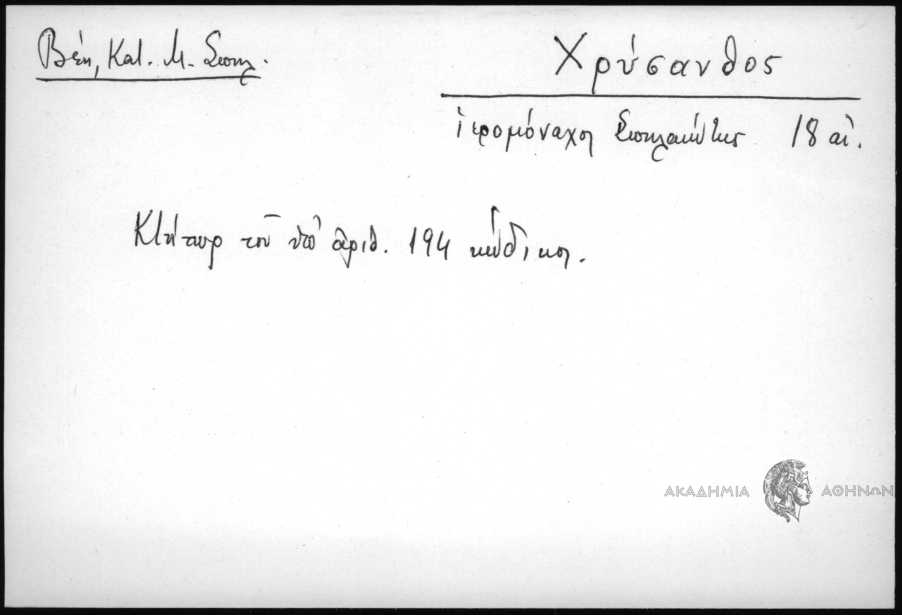 Βέη, Κατ. Μ. Σπηλ.
Χρύσανθος
ἱερομόναχος Σπηλαιώτης 18 αἰ.
Κτήτωρ τοῦ ὑπ' ἀριθ. 194 κώδικος.
ΑΚΑΔΗΜΙΑ ΑΘΗΝΩΝ